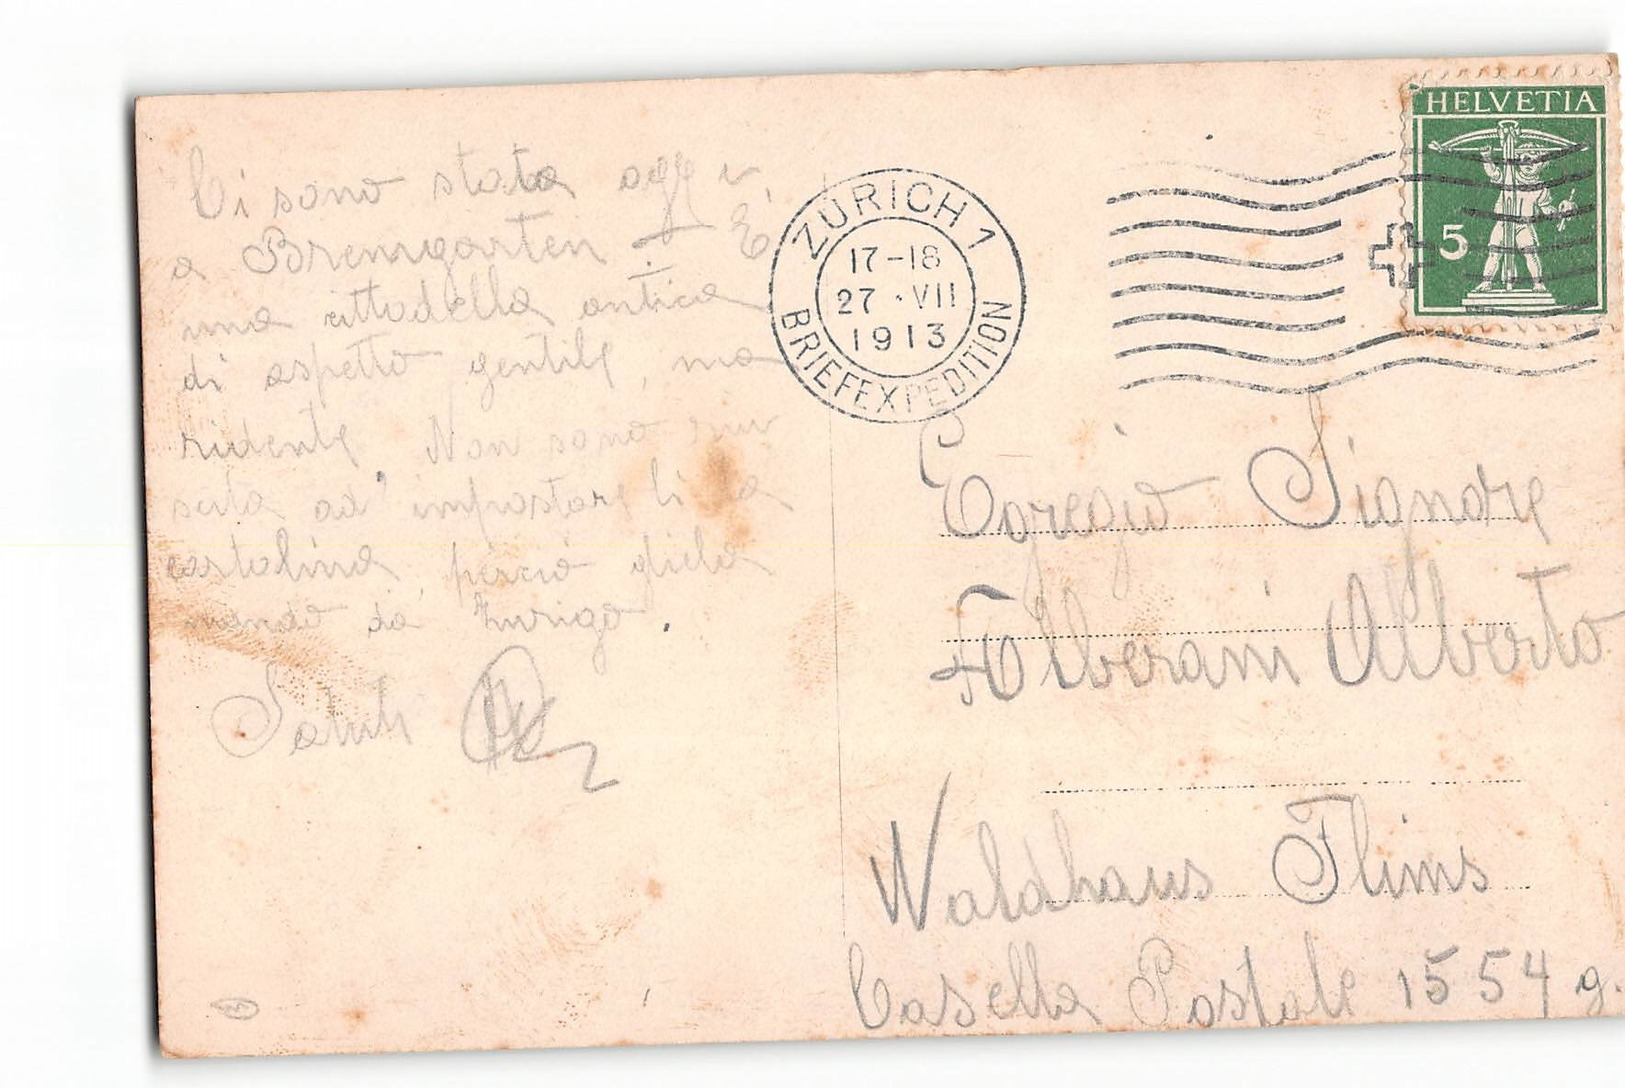 Ci sono stata oggi
a Bremgarten. È
una cittadella antica
di aspetto gentile, ma
ridente. Non sono riu
scita ad impostare lì la
cartolina, perciò gliela
mando da Zurigo.
Saluti
ZÜRICH 1
17-18
27 · VII
1913
BRIEFEXPEDITION
HELVETIA
5
Egregio Signore
Alberani Alberto
Waldhaus Flims
Casella Postale 1554 g.